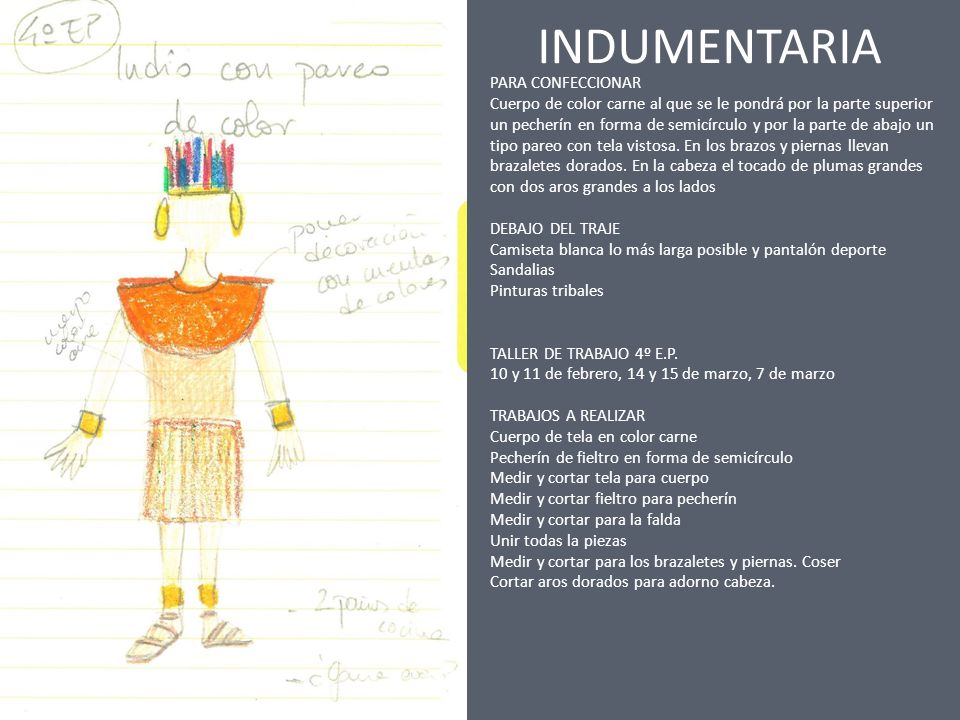 4º EP
Indio con pareo
de color
poner
decoración
con cuentas
de colores
cuerpo
color
carne
- 2 paños de
cocina
- ¿Goma eva?
INDUMENTARIA
PARA CONFECCIONAR
Cuerpo de color carne al que se le pondrá por la parte superior
un pecherín en forma de semicírculo y por la parte de abajo un
tipo pareo con tela vistosa. En los brazos y piernas llevan
brazaletes dorados. En la cabeza el tocado de plumas grandes
con dos aros grandes a los lados
DEBAJO DEL TRAJE
Camiseta blanca lo más larga posible y pantalón deporte
Sandalias
Pinturas tribales
TALLER DE TRABAJO 4º E.P.
10 y 11 de febrero, 14 y 15 de marzo, 7 de marzo
TRABAJOS A REALIZAR
Cuerpo de tela en color carne
Pecherín de fieltro en forma de semicírculo
Medir y cortar tela para cuerpo
Medir y cortar fieltro para pecherín
Medir y cortar para la falda
Unir todas la piezas
Medir y cortar para los brazaletes y piernas. Coser
Cortar aros dorados para adorno cabeza.